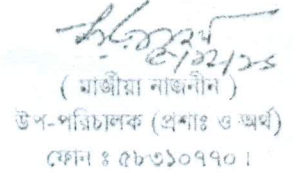 ( মাজীয়া নাজনীন )
উপ-পরিচালক (প্রশাঃ ও অর্থ)
ফোন ঃ ৫৮৩১০৭৭০।